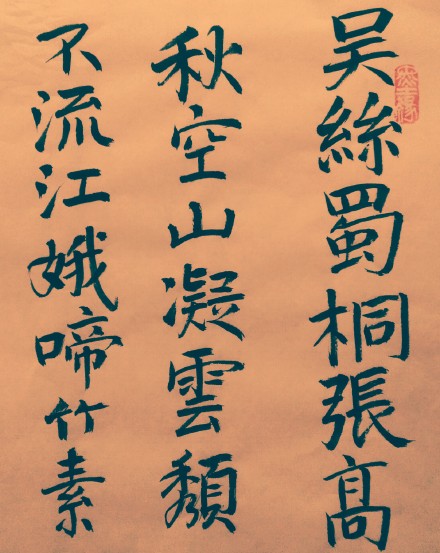 吳絲蜀桐張高
秋空山凝雲頹
不流江娥啼竹素